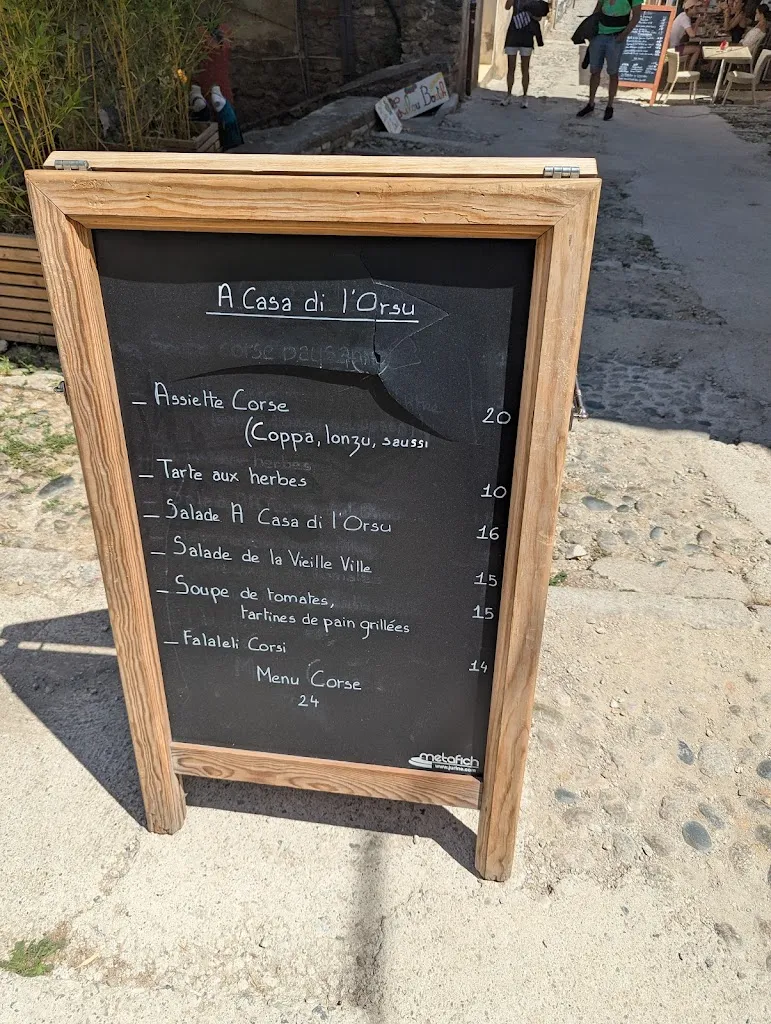 A Casa di l'Orsu
corse paysanne
_ Assiette Corse 20
(Coppa, lonzu, saussi
_ Tarte aux herbes 10
_ Salade A Casa di l'Orsu 16
_ Salade de la Vieille Ville 15
_ Soupe de tomates, 15
tartines de pain grillées
_ Falaleli Corsi 14
Menu Corse
24
metafich